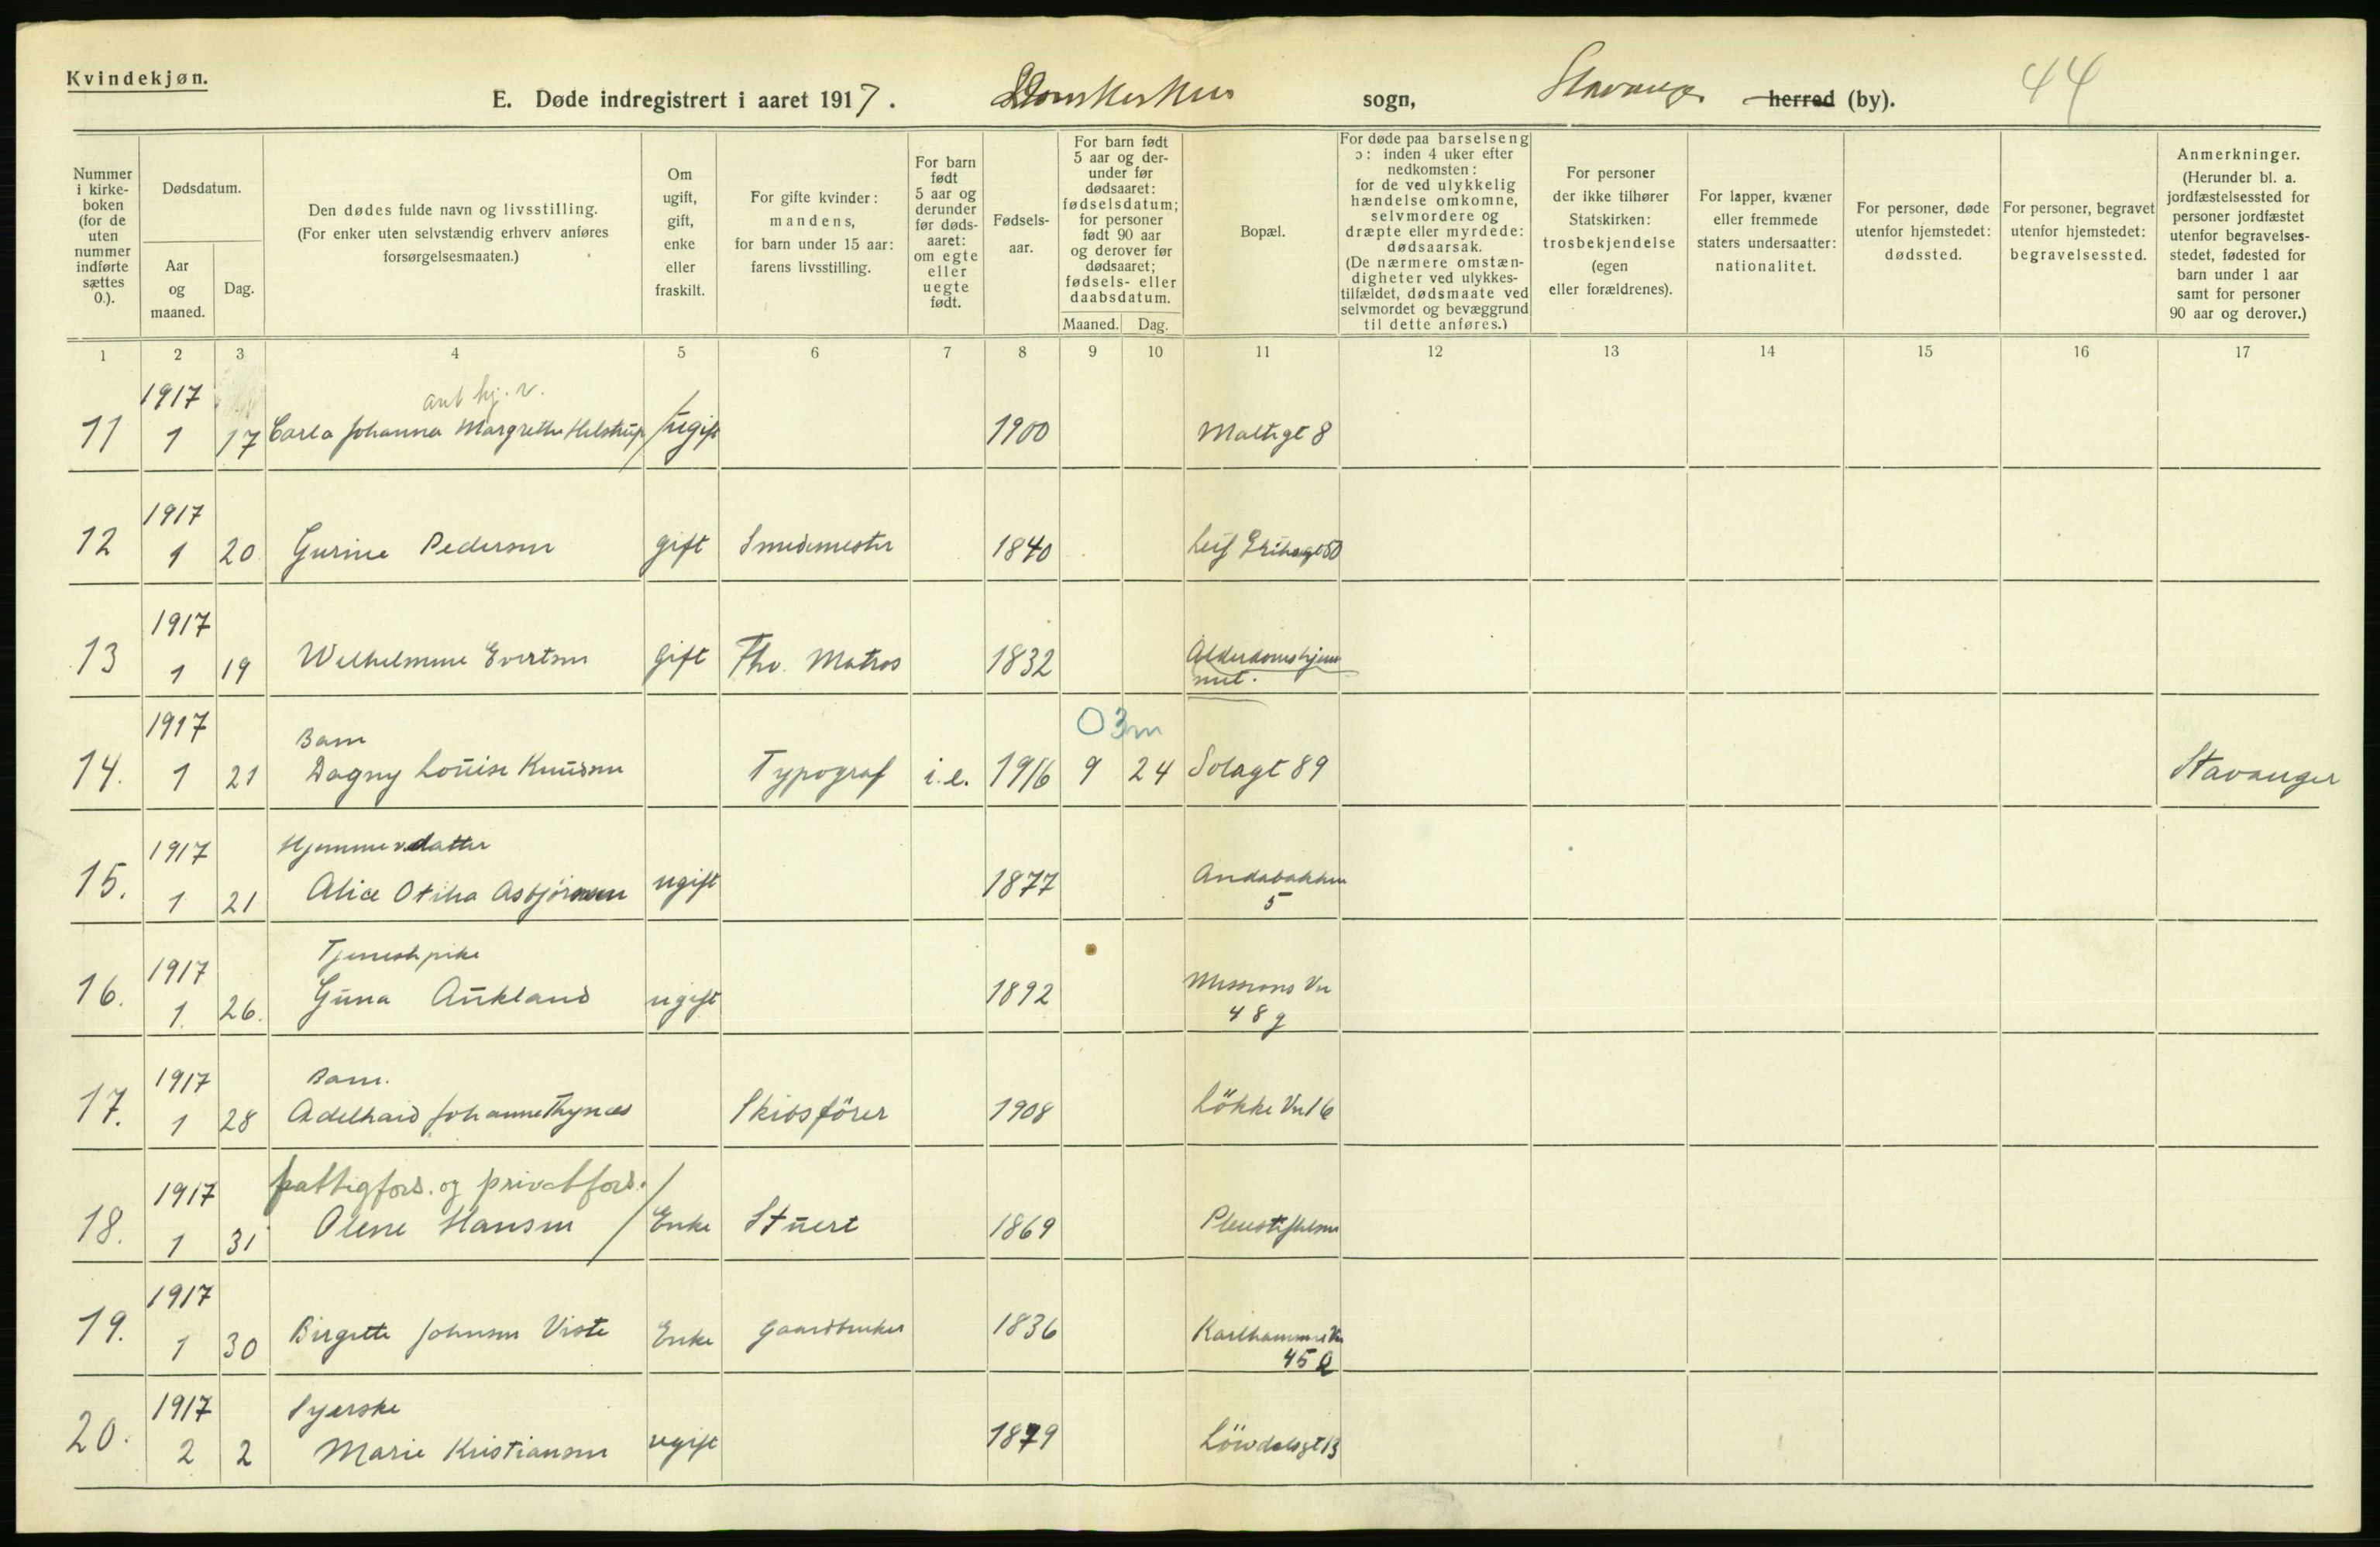 Kvindekjøn.
E. Døde indregistrert i aaret 1917. Domkirkens sogn, Stavanger herred (by). 44
Nummer i kirke-boken (for de uten nummer indførte sættes 0.).
Dødsdatum.
Aar og maaned.
Dag.
Den dødes fulde navn og livsstilling. (For enker uten selvstændig erhverv anføres forsørgelsesmaaten.)
Om ugift, gift, enke eller fraskilt.
For gifte kvinder: mandens, for barn under 15 aar: farens livsstilling.
For barn født 5 aar og derunder før døds-aaret: om egte eller uegte født.
Fødsels-aar.
For barn født 5 aar og der-under før dødsaaret: fødselsdatum; for personer født 90 aar og derover før dødsaaret; fødsels- eller daabsdatum.
Maaned. Dag.
Bopæl.
For døde paa barselseng ɔ: inden 4 uker efter nedkomsten: for de ved ulykkelig hændelse omkomne, selvmordere og dræpte eller myrdede: dødsaarsak. (De nærmere omstæn-digheter ved ulykkes-tilfældet, dødsmaate ved selvmordet og bevæggrund til dette anføres.)
For personer der ikke tilhører Statskirken: trosbekjendelse (egen eller forældrenes).
For lapper, kvæner eller fremmede staters undersaatter: nationalitet.
For personer, døde utenfor hjemstedet: dødssted.
For personer, begravet utenfor hjemstedet: begravelsessted.
Anmerkninger. (Herunder bl. a. jordfæstelsessted for personer jordfæstet utenfor begravelses-stedet, fødested for barn under 1 aar samt for personer 90 aar og derover.)
1 2 3 4 5 6 7 8 9 10 11 12 13 14 15 16 17
1917 ant hj. v.
11 1 17 Carla Johanna Margrethe Helstrup ugift 1900 Maltigt 8
1917
12 1 20 Gurine Pedersen gift Smedmester 1840 Leif Eriksgt 50
1917
13 1 19 Wilhelmine Evertsen gift Fhv. Matros 1832 Alderdomshjem
met.
1917 Barn 03m
14. 1 21 Dagny Louise Knudsen Typograf i.e. 1916 9 24 Solagt 89 Stavanger
1917 Hjemmev. datter
15. 1 21 Alice Otilia Asbjörnsen ugift 1877 Andabakken
5
1917 Tjenestepike
16. 1. 26. Guna Aukland ugift 1892 Missions Vn
48 g
1917 Barn.
17. 1 28 Adelhaid Johanne Thynæs Skibsförer 1908 Lökke Vn 16
1917 fattigfors. og privatfors.
18. 1 31 Olene Hansen Enke Stuert 1869 Pleiestiftelsen
1917
19. 1 30 Birgette Johnsen Viste Enke Gaardbruker 1836 Karlhammer Vn
45 a
1917 Syerske
20. 2 2 Marie Kristiansen ugift 1879 Lövdalsgt 13